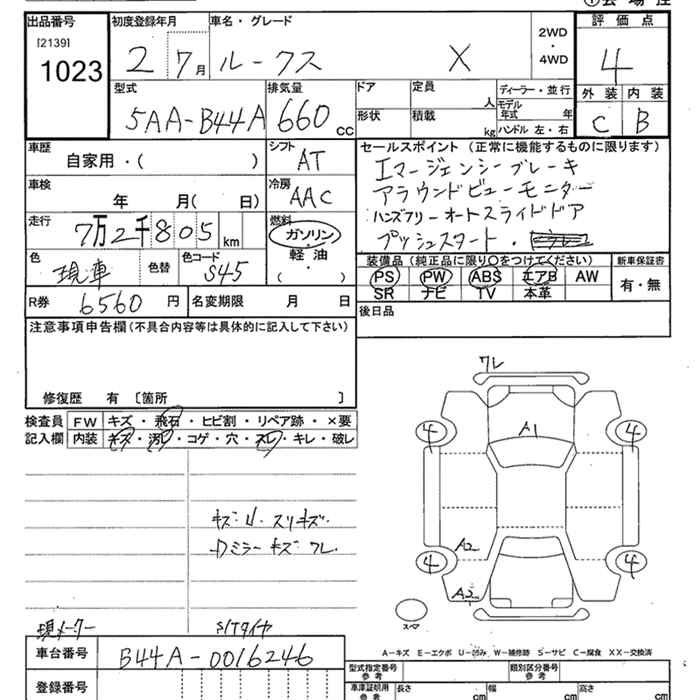 出品番号 初度登録年月 車名・グレード 評価点
[2139]
1023 2 7月 ルークス X 2WD・4WD 4
型式 排気量 ドア 定員 人 ディーラー・並行 外装 内装
5AA-B44A 660cc 形状 積載 kg モデル年式 年 ハンドル 左・右 C B
車歴 自家用・( ) シフト AT セールスポイント (正常に機能するものに限ります)
エマージェンシーブレーキ
車検 年 月( 日) 冷房 AAC アラウンドビューモニター
走行 7万2千805km 燃料 ガソリン・軽油・( ) ハンズフリーオートスライドドア
プッシュスタート・
色 現車 色替 色コード S45 装備品 (純正品に限り○をつけてください) 新車保証書
PS PW ABS エアB AW 有・無
R券 6560円 名変期限 月 日 SR ナビ TV 本革
注意事項申告欄(不具合内容等は具体的に記入して下さい) 後日品
修復歴 有 〔箇所 〕
検査員記入欄 FW キズ・飛石・ヒビ割・リペア跡・×要
内装 キズ・汚レ・コゲ・穴・スレ・キレ・破レ
ワレ
4 A1 4
キズ・U スリキズ・
Dミラーキズワレ
4 A2 4
A2
スペア
現メーター S/Tタイヤ
A-キズ E-エクボ U-凹み W-補修跡 S-サビ C-腐食 XX-交換済
車台番号 B44A-0016246
型式指定番号 参考 類別区分番号 参考
登録番号 車庫証明用 参考 長さ cm 幅 cm 高さ cm